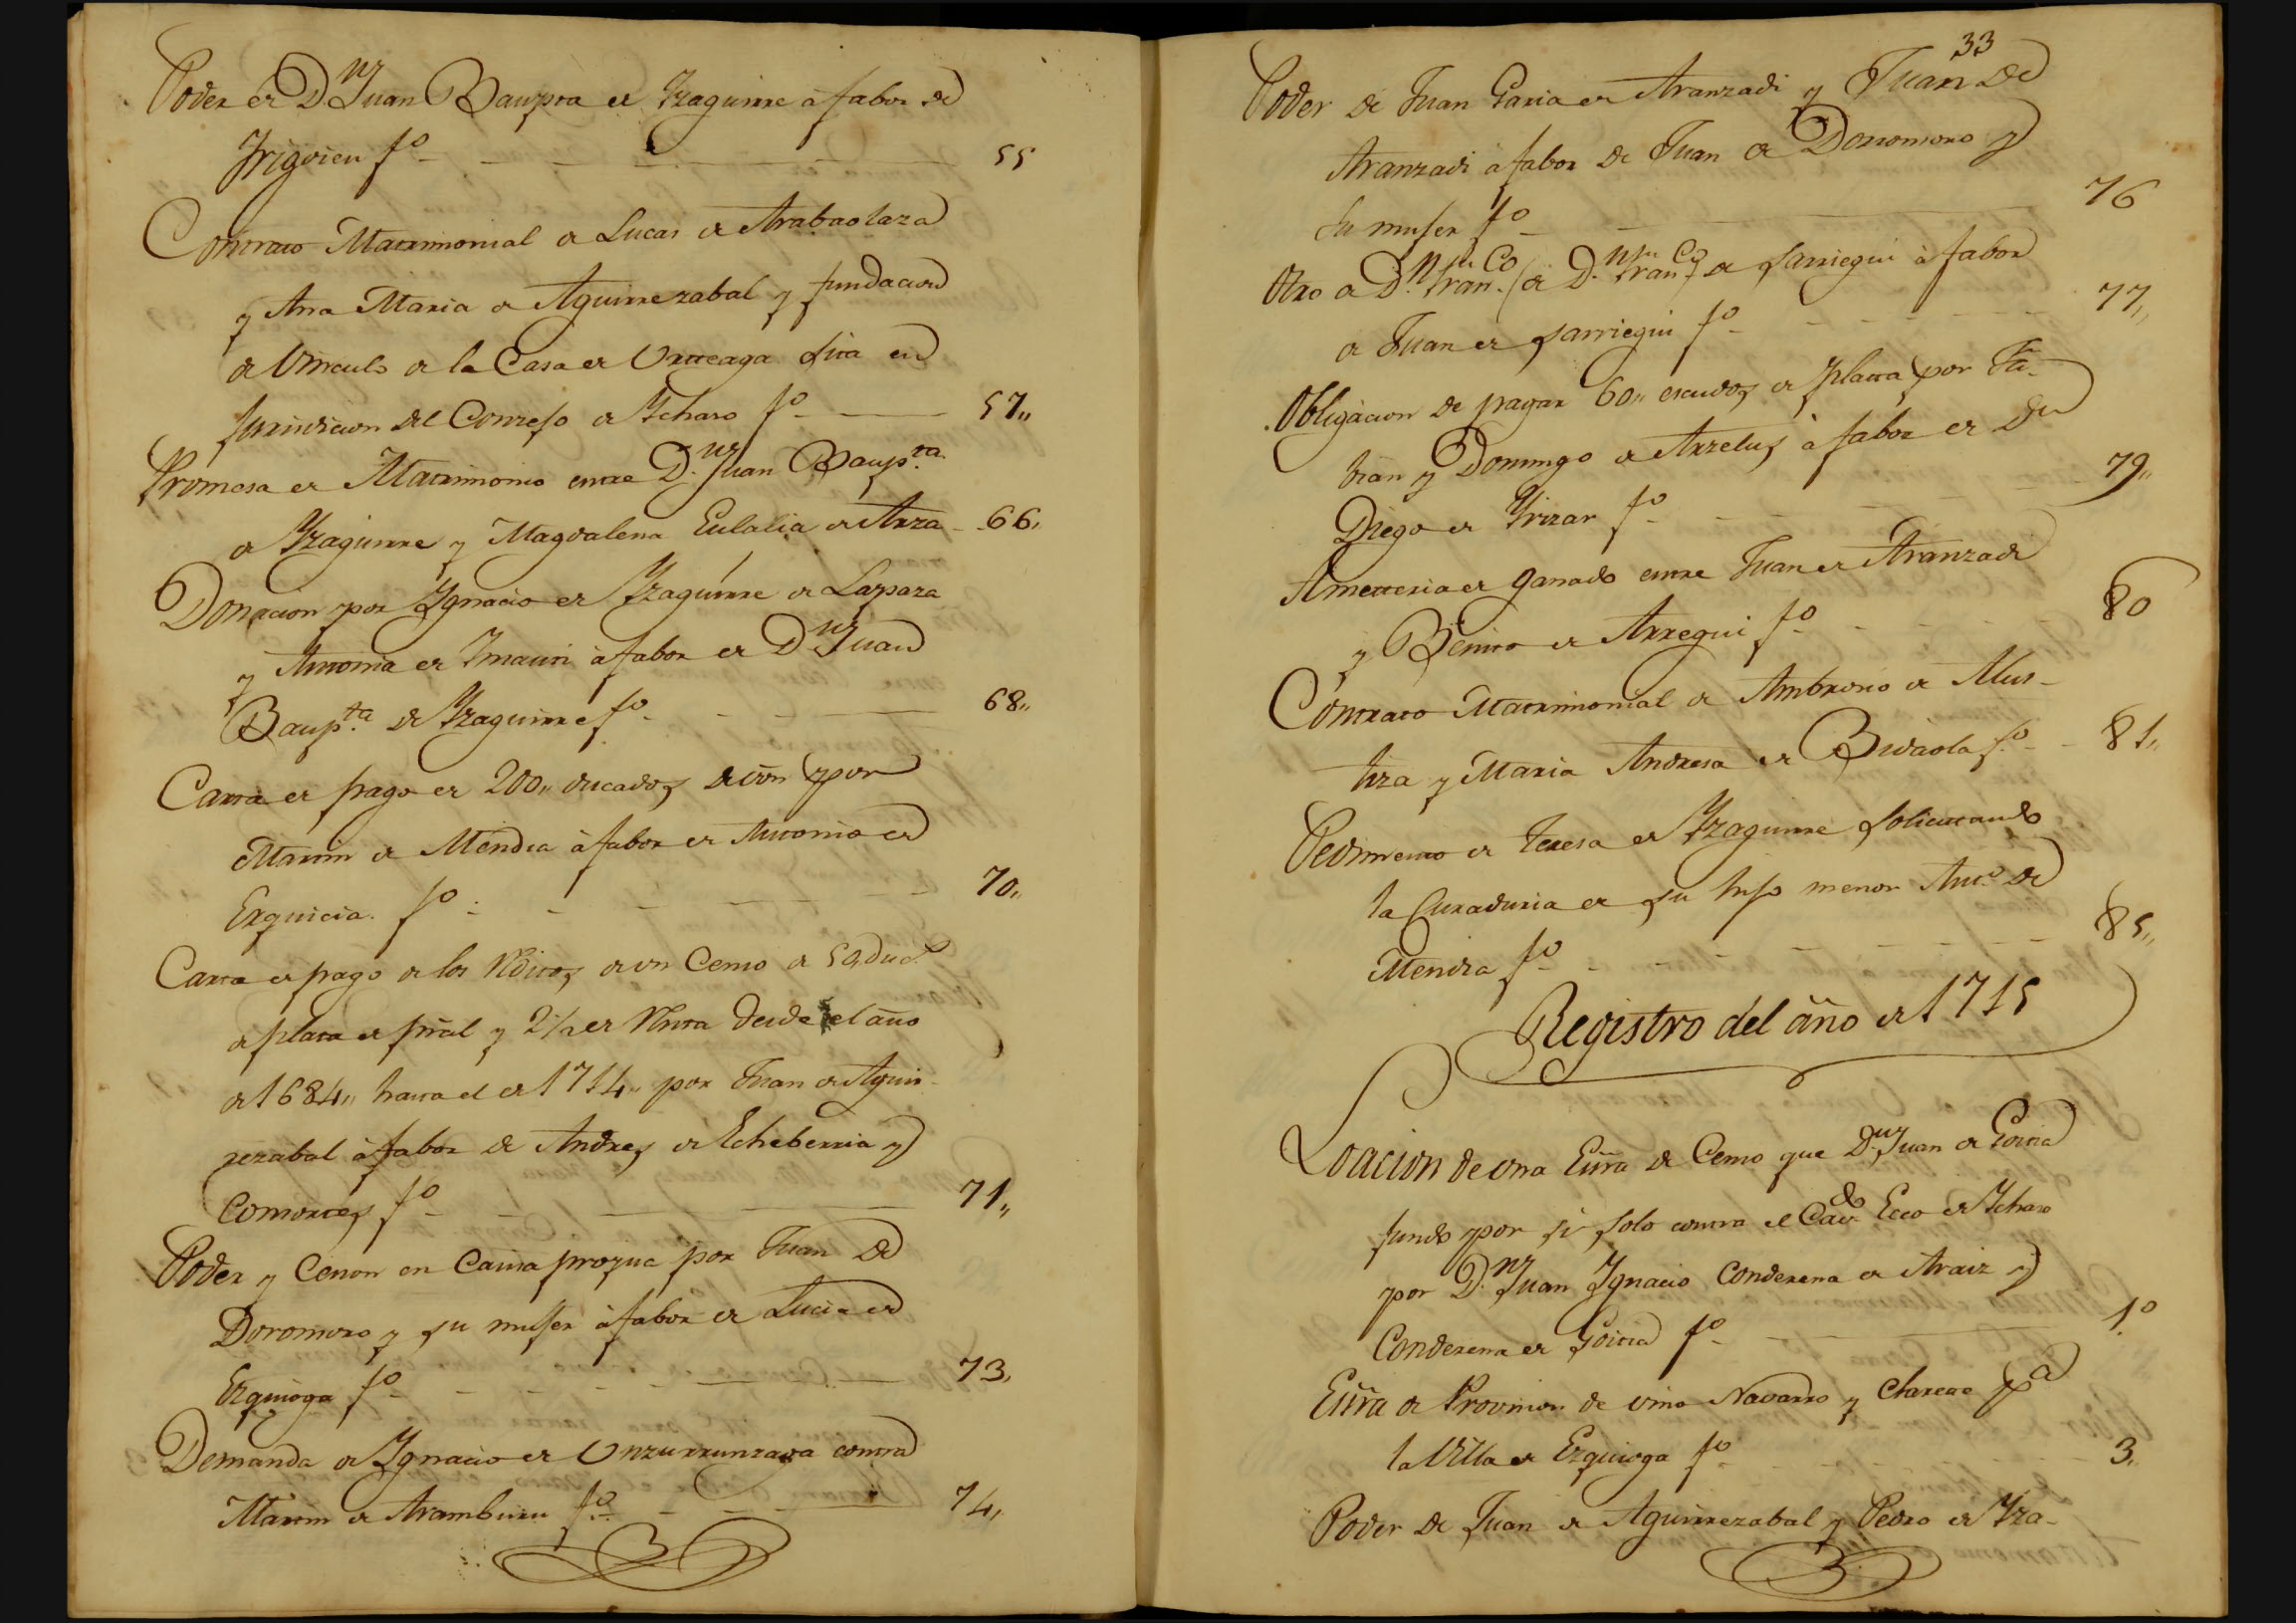 Poder de D.n Juan Baupta de Yzaguirre à fabor de
Yrigoien f.o 55
Contrato Matrimonial de Lucas de Arabaolaza
y Ana Maria de Aguirrezabal y fundacion
de Vinculo de la Casa de Urteaga sita en
Jurisdicion del Conzejo de Ychaso f.o 57,,
Promesa de Matrimonio entre D.n Juan Baup.ta
de Yzaguirre y Magdalena Eulalia de Arza 66,
Donacion por Ygnacio de Yzaguirre de Lazpara
y Antonia de Ymaari à fabor de D.n Juan
Baup.ta de Yzaguirre f.o 68,,
Carta de pago de 200,, ducados de von por
Martin de Mendia à fabor de Antonio de
Ezquicia. f.o 70,,
Carta de pago de los Rditos de un Censo de 50 duc.s
de plata de pral y 2 1/2 de Renta desde el año
de 1684,, hasta el de 1714,, por Juan de Aguir-
rezabal à fabor de Andres de Echeberria y
consortes f.o 71,,
Poder y Cesion en Causa propia por Juan de
Doromoro y su muger à fabor de Lucia de
Ezquioga f.o 73,
Demanda de Ygnacio de Unzurrunzaga contra
Martin de Aramburu f.o 74,
33
Poder de Juan Garcia de Aranzadi y Juan de
Aranzadi à fabor de Juan de Dorromoro y
su muger f.o 76
Otro de D.n Fran.co (de D.n Fran.co) de Sarriegui à fabor
de Juan de Sarriegui f.o 77,,
Obligacion de pagar 60,, escudos de plata por Fa-
bian y Domingo de Arzelus à fabor de Dn
Diego de Yrizar f.o 79,,
Ameteria de ganado entre Juan de Aranzadi
y Benito de Arregui f.o 80
Contrato Matrimonial de Ambrosio de Alus-
tiza y Maria Andresa de Bidaola f.o 81,,
Pedimento de Teresa de Yzaguirre solicitando
la Curaduria de su hijo menor Ant.o de
Mendia f.o 85,,
Registro del año de 1715
Loacion de una Esira de Censo que D.n Juan de Goitia
fundo por si solo contra el Cav.do Ecco de Ychaso
por D.n Juan Ygnacio Conderena de Araiz y
Conderena de Goitia f.o 1.o
Esira de Provision de vino Navarro y Clarete p.a
la Villa de Ezquioga f.o 3,
Poder de Juan de Aguirrezabal y Pedro de Yza-